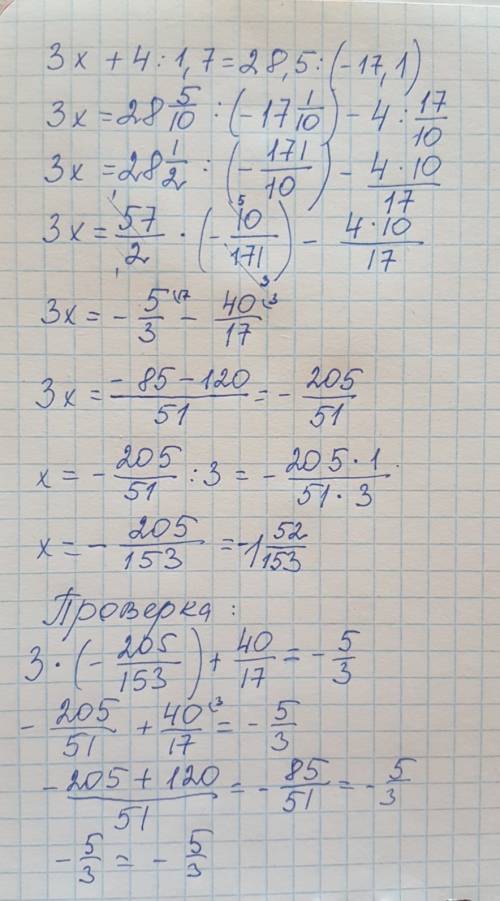 3x + 4 : 1,7 = 28,5 : (-17,1)
3x = 28 5/10 : (-17 1/10) - 4 : 17/10
3x = 28 1/2 : (- 171/10) - 4·10/17
3x = 57/2 · (- 10/171) - 4·10/17
3x = - 5/3 - 40/17
3x = -85-120/51 = - 205/51
x = - 205/51 : 3 = - 205·1/51·3
x = - 205/153 = -1 52/153
Проверка :
3 · (- 205/153) + 40/17 = - 5/3
- 205/51 + 40/17 = - 5/3
-205+120/51 = - 85/51 = - 5/3
- 5/3 = - 5/3